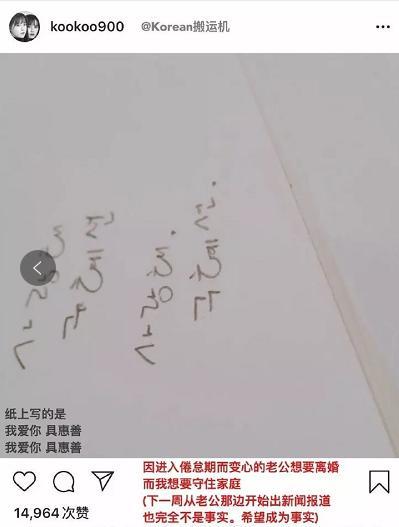 kookoo900
@Korean搬运机
纸上写的是
我爱你 具惠善
我爱你 具惠善
因进入倦怠期而变心的老公想要离婚
而我想要守住家庭
(下一周从老公那边开始出新闻报道
也完全不是事实。希望成为事实)
14,964 次赞